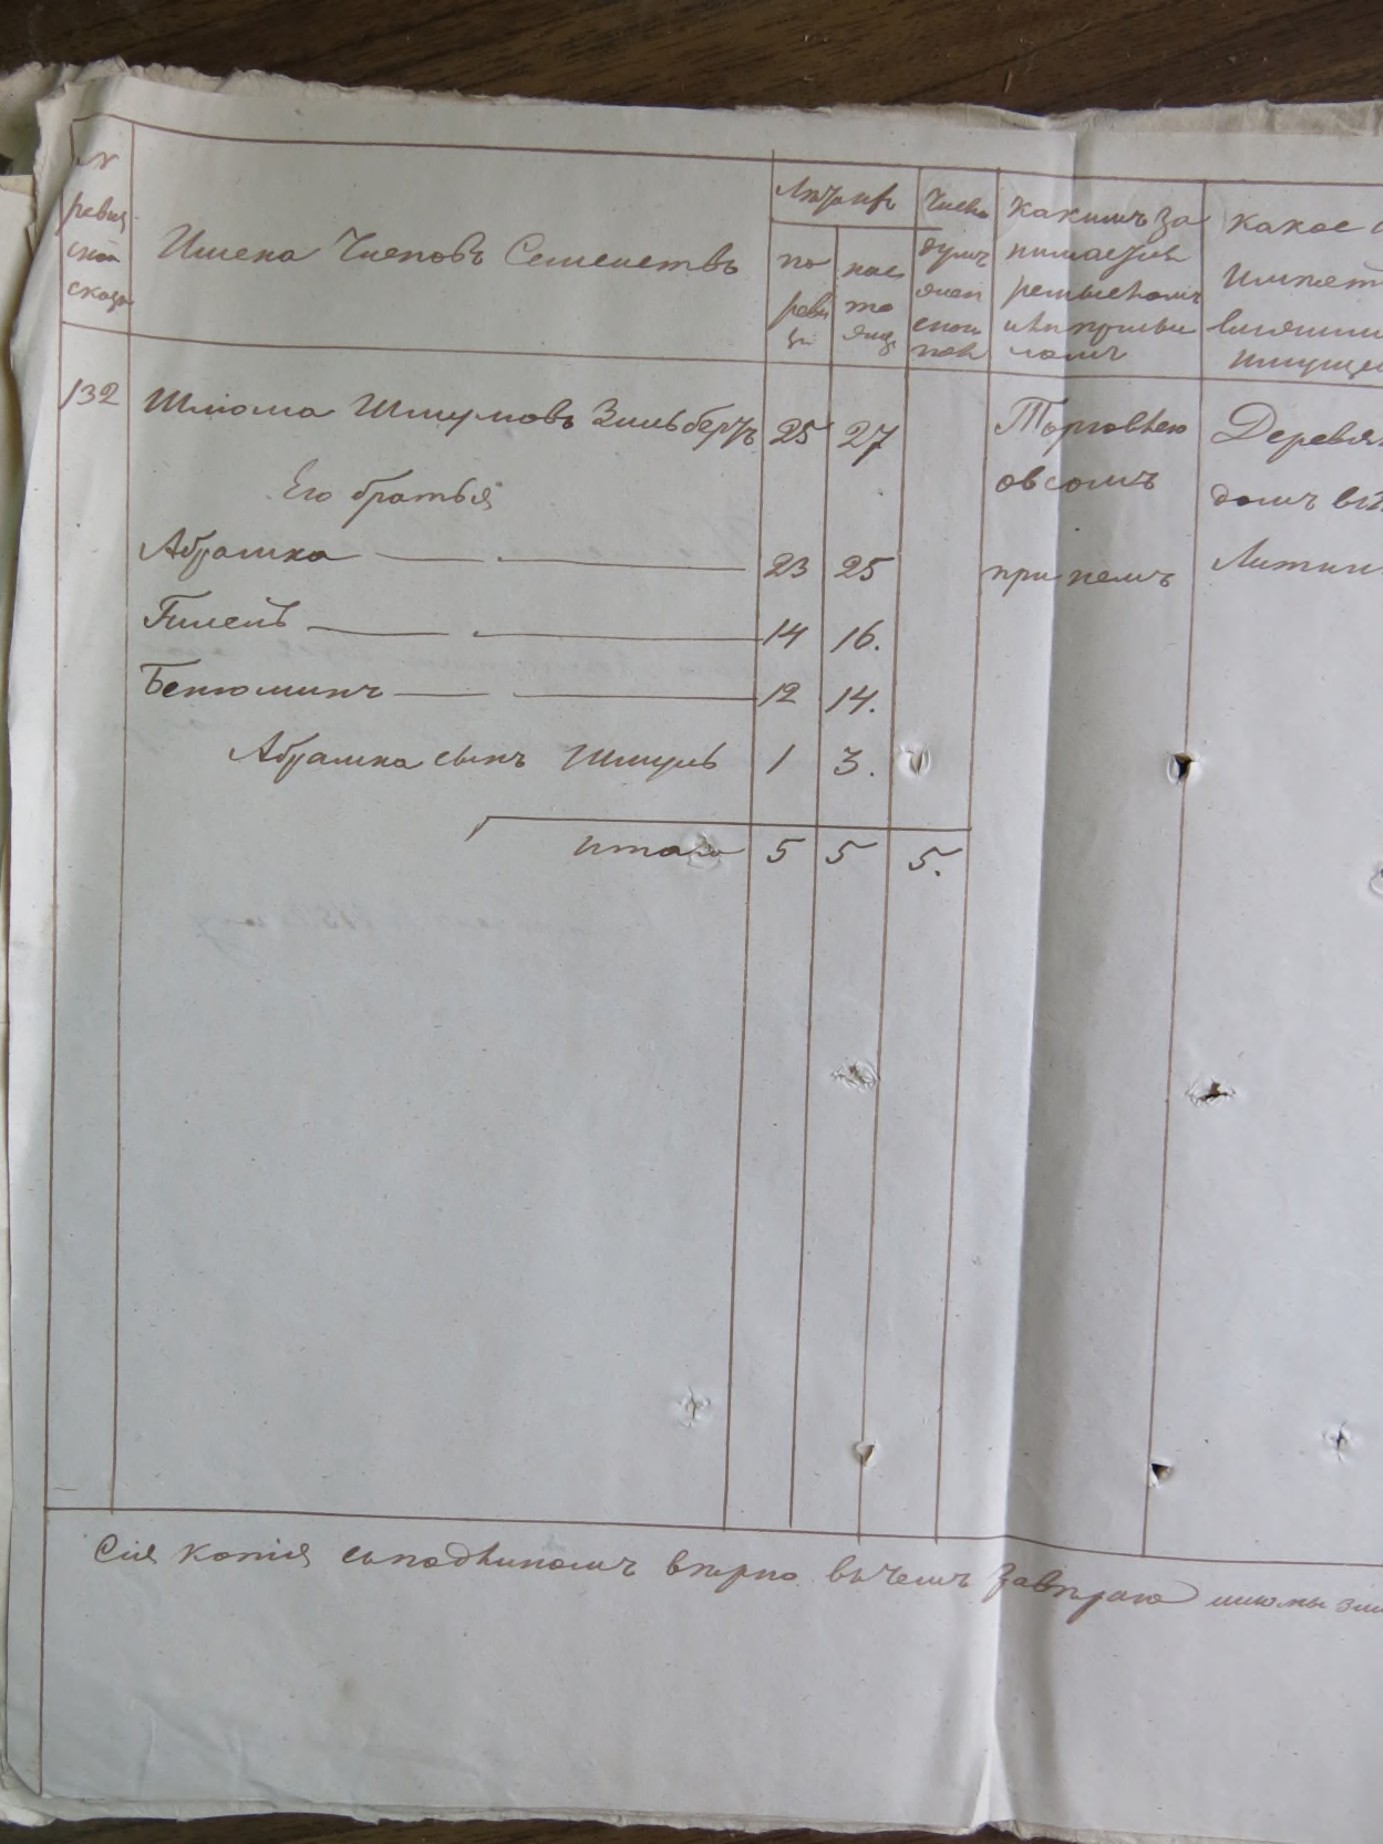 № ревиз ской сказк
Имена Членовъ Семействъ
Лѣта ихъ
по реви зіи
нас то ящ
Число душъ
какимъ за нимается ремысломъ или промы сломъ
какое
имѣет
132 Шлiома Шмулювъ Зильберъ 25 27
Торговлею овсомъ
Деревя
домъ въ
Его братья
Абрамко 23 25
при немъ
Литин
Гилель 14 16.
Бенюминъ 12 14.
Абрамка сынъ Шмуль 1 3.
итого 5 5 5.
Сія копія съ подлиномъ вѣрно въ чемъ завѣраю